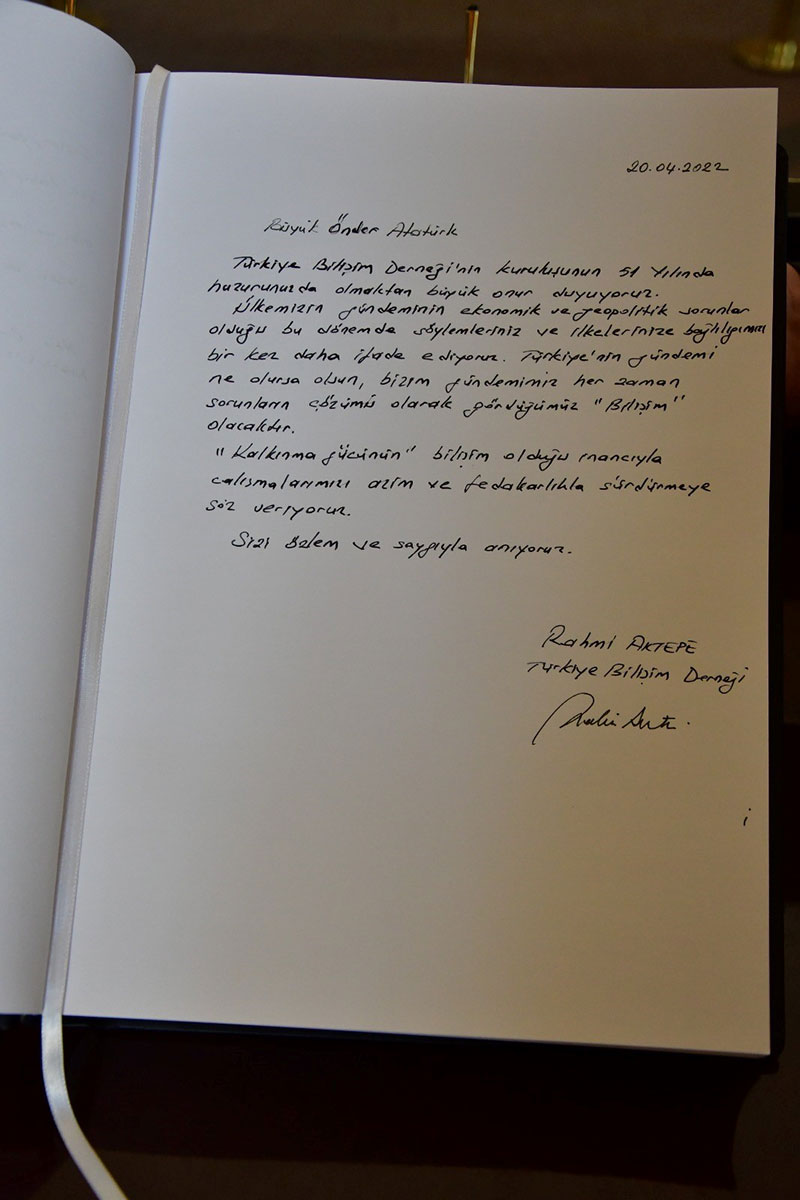 20.04.2022
Büyük Önder Atatürk
Türkiye Bilişim Derneği'nin kuruluşunun 51 Yılında
huzurunuzda olmaktan büyük onur duyuyoruz.
Ülkemizin gündeminin ekonomik ve geopolitik sorunlar
olduğu bu dönemde söylemleriniz ve ilkelerinize bağlılığımızı
bir kez daha ifade ediyoruz. Türkiye'nin gündemi
ne olursa olsun, bizim gündemimiz her zaman
sorunların çözümü olarak gördüğümüz "Bilişim"
olacaktır.
"Kalkınma gücünün" bilişim olduğu inancıyla
çalışmalarımızı azim ve fedakarlıkla sürdürmeye
söz veriyoruz.
Sizi özlem ve saygıyla anıyoruz.
Rahmi AKTEPE
Türkiye Bilişim Derneği